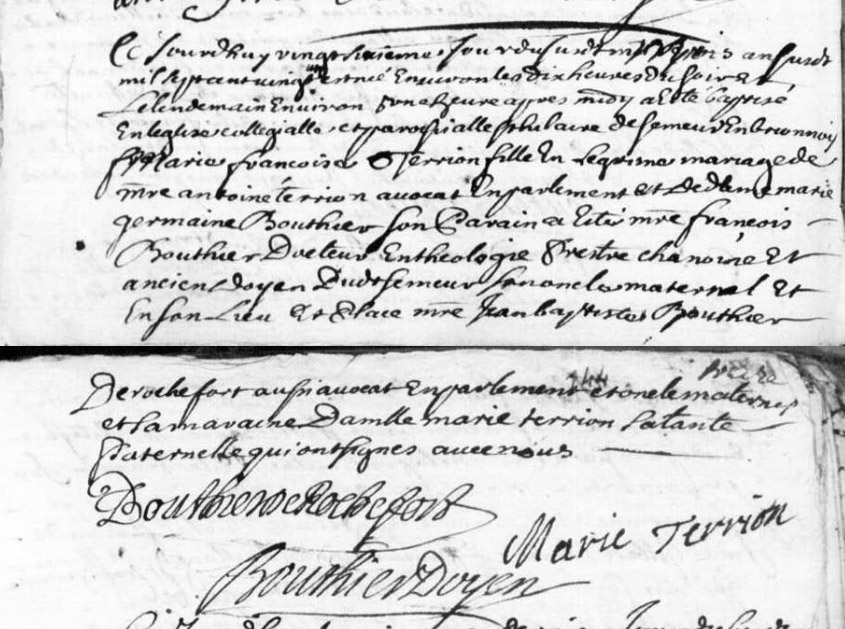 Ce jourdhuy vingtsixieme jour dudt mois an susdt
mil sept cent vingt est née Environ les dix heures du soir et
Le lendemain Environ une heure apres midy a Esté baptisée
En leglise collegialle et parossialle st hilaire de semeur En brionnois
marie francoise Terrion fille En Legitime mariage de
mre antoine terrion avocat En parlement et de dame marie
germaine Bouthier son Parain a Esté mre francois
Bouthier Docteur En theologie Prestre chanoine Et
ancien doyen Dudt semeur son oncle maternel Et
En son Lieu Et Place mre Jean baptiste Bouthier
De rochefort aussi avocat En parlement et oncle maternel
et sa maraine Damlle marie terrion sa tante
Paternelle qui ont signes avec nous
Bouthier de Rochefort
Marie Terrion
Bouthier Doyen